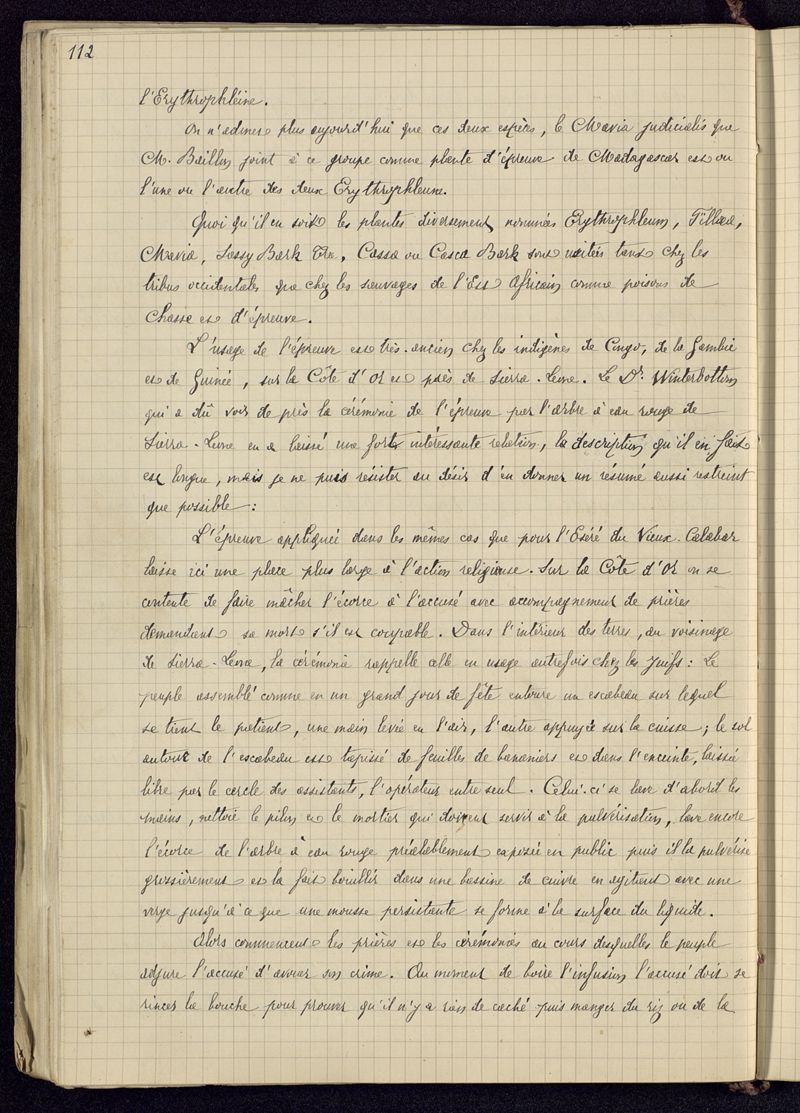 112
l'Erythrophléine.
On n'admet plus aujourd'hui que ces deux espèces, le Mavia judicialis que
M. Baillon joint à ce groupe comme plante d'épreuve de Madagascar est ou
l'une ou l'autre des deux Erythrophleum.
Quoi qu'il en soit les plantes diversement nommées Erythrophleum, Fillæa,
Mavia, Sassy Bark Tree, Cassa ou Casca Bark sont usitées tant chez les
tribus occidentales que chez les sauvages de l'Est Africain comme poisons de
chasse et d'épreuve.
L'usage de l'épreuve est très-ancien chez les indigènes de Congo, de la Gambie
et de Guinée, sur la Côte d'Or et près de Sierra-Leone. Le Dr. Winterbottom
qui a dû voir de près la cérémonie de l'épreuve par l'arbre à eau rouge de
Sierra-Leone en a laissé une fort intéressante relation, la description qu'il en fait
est longue, mais je ne puis résister au désir d'en donner un résumé aussi restreint
que possible :
L'épreuve appliquée dans les mêmes cas que pour l'Eséré du Vieux-Calabar
laisse ici une place plus large à l'action religieuse. Sur la Côte d'Or on se
contente de faire mâcher l'écorce à l'accusé avec accompagnement de prières
demandant sa mort s'il est coupable. Dans l'intérieur des terres, au voisinage
de Sierra-Leone, la cérémonie rappelle celle en usage autrefois chez les Juifs : Le
peuple assemblé comme en un grand jour de fête entoure un escabeau sur lequel
se tient le patient, une main levée en l'air, l'autre appuyée sur la cuisse ; le sol
autour de l'escabeau est tapissé de feuilles de bananiers et dans l'enceinte, laissée
libre par le cercle des assistants, l'opérateur entre seul. Celui-ci se lave d'abord les
mains, nettoie le pilon et le mortier qui doivent servir à la pulvérisation, lave encore
l'écorce de l'arbre à eau rouge préalablement exposée en public puis il la pulvérise
grossièrement et la fait bouillir dans une bassine de cuivre en agitant avec une
verge jusqu'à ce que une mousse persistante se forme à la surface du liquide.
Alors commencent les prières et les cérémonies au cours desquelles le peuple
adjure l'accusé d'avouer son crime. Au moment de boire l'infusion l'accusé doit se
rincer la bouche pour prouver qu'il n'y a rien de caché puis manger du riz ou de la